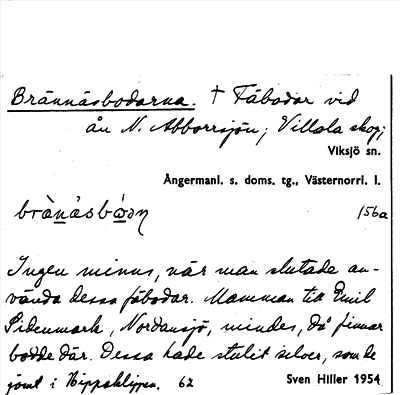 Brännåsbodarna. † Fäbodar vid
ån N. Abborrsjön; Villola skog;
Viksjö sn.
Ångermanl. s. doms. tg., Västernorrl. l.
156a
Ingen minns, när man slutade an-
vända dessa fäbodar. Mamman till Emil
Sidenmark, Nordansjö, mindes, då finnar
bodde där. Dessa hade stulit silver, som de
gömt i Hippsklippen. 62
Sven Hiller 1954